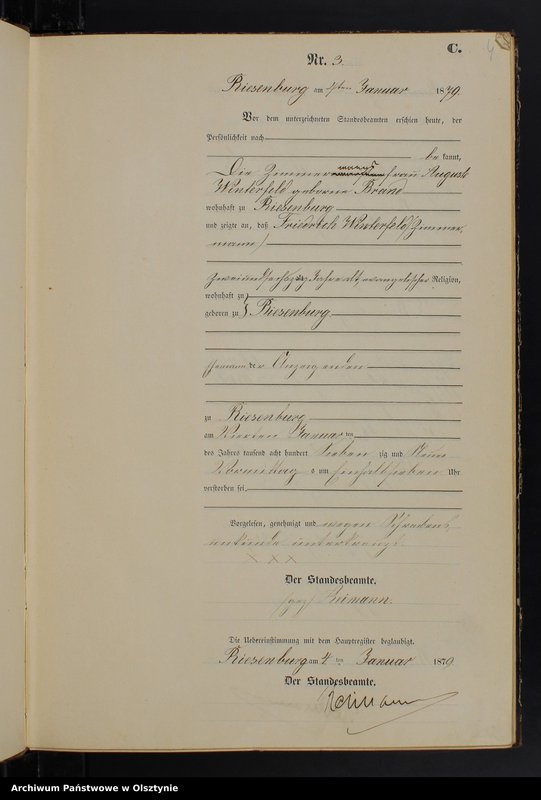 C.
Nr. 3.
Riesenburg am 4ten Januar 1879
Vor dem unterzeichneten Standesbeamten erschien heute, der
Persönlichkeit nach
be kannt,
Die Zimmermannsfrau Auguste
Winterfeld geborne Braun
wohnhaft zu Riesenburg
und zeigte an, daß Friedrich Winterfeld (Zimmer
mann)
zweiundsechszig Jahre alt, evangelischer Religion,
wohnhaft zu
geboren zu } Riesenburg
Ehemann der Anzeigenden
zu Riesenburg
am Vierten Januar ten
des Jahres tausend acht hundert sieben zig und Neun
Vormittag s um einhalbsieben Uhr
verstorben sei.
Vorgelesen, genehmigt und wegen Schreibens
unkunde unterkreuzt.
X X X
Der Standesbeamte.
(gez) Reimann.
Die Uebereinstimmung mit dem Hauptregister beglaubigt.
Riesenburg am 4 ten Januar 1879
Der Standesbeamte.
Reimann
Archiwum Państwowe w Olsztynie